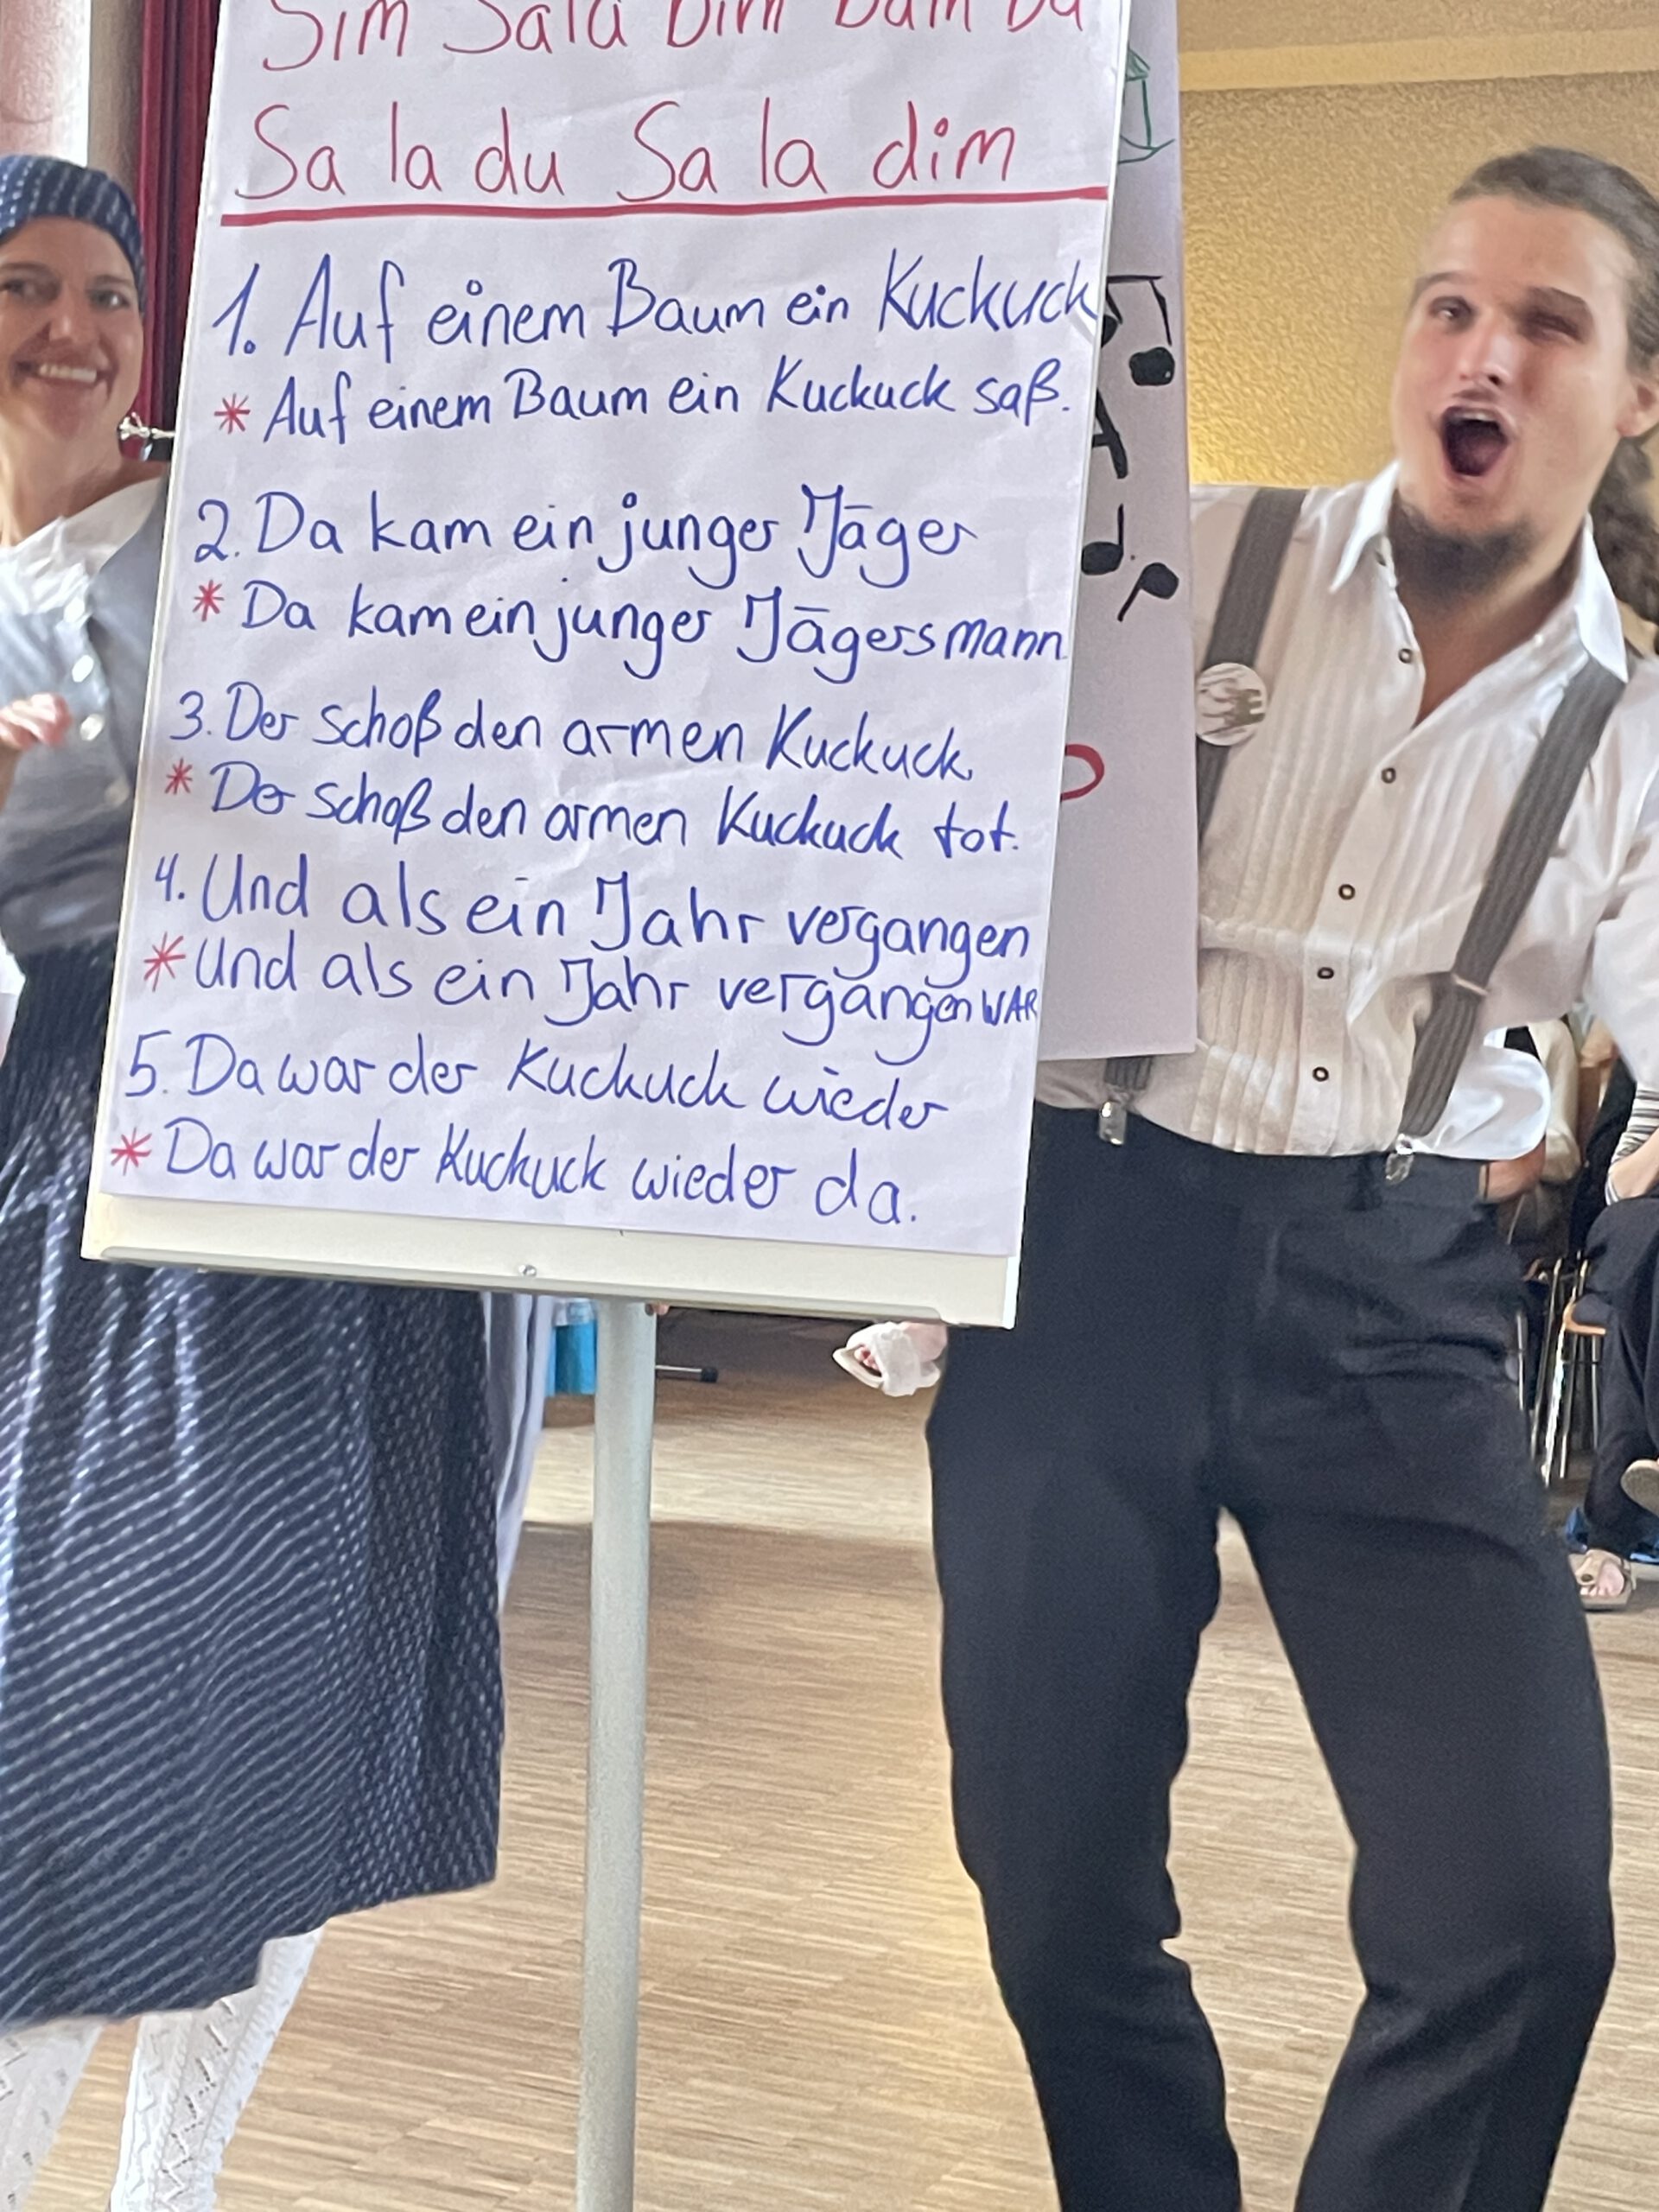 Sim Sala Bim Bam Ba
Sa la du Sa la dim
1. Auf einem Baum ein Kuckuck
* Auf einem Baum ein Kuckuck saß.
2. Da kam ein junger Jäger
* Da kam ein junger Jägersmann
3. Der schoß den armen Kuckuck
* Der schoß den armen Kuckuck tot.
4. Und als ein Jahr vergangen
* Und als ein Jahr vergangen WAR
5. Da war der Kuckuck wieder
* Da war der Kuckuck wieder da.